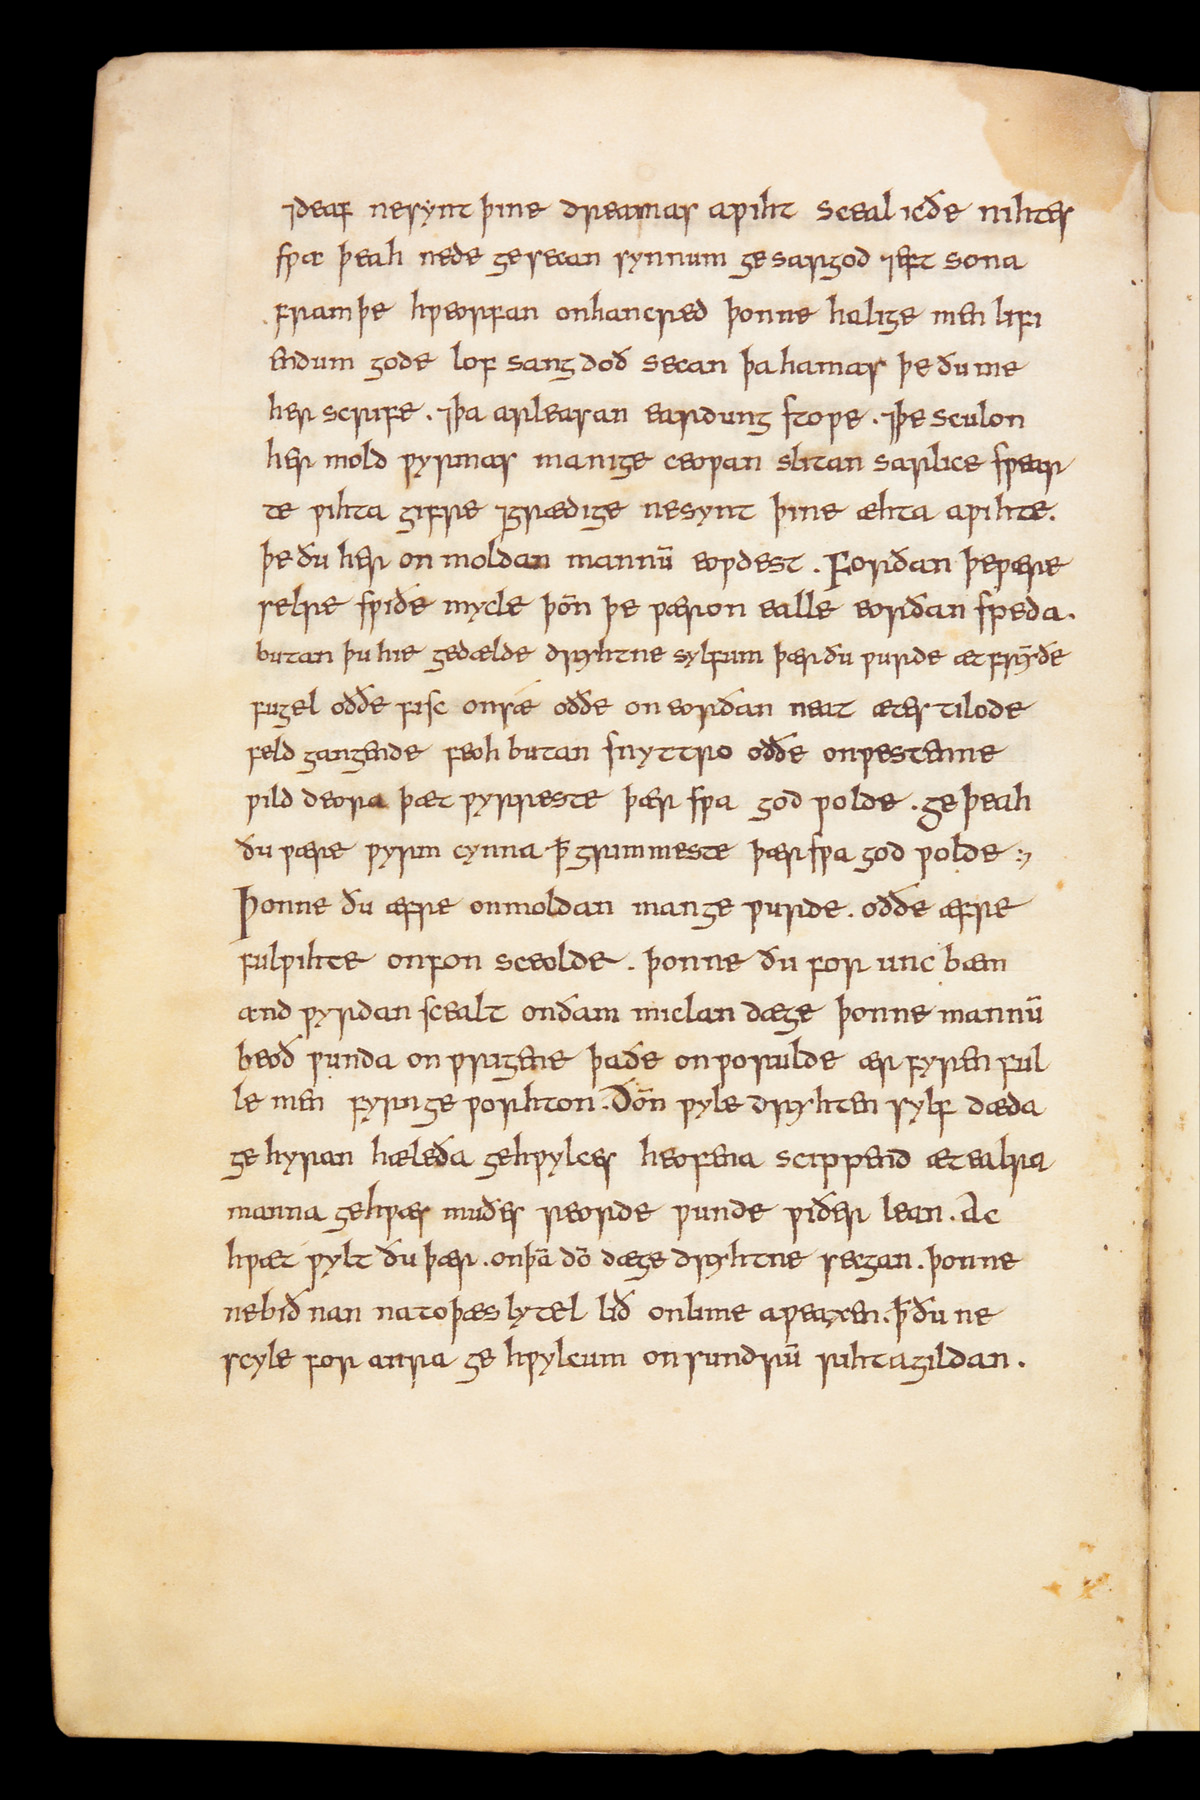 ⁊deaf nesynt þine dreamas aƿiht sceal icðe nihtes
sƿa þeah nede gesecan synnum gesargod ⁊eft sona
framþe hƿeorfan onhancred þonne halige men lifi
endum gode lof sang doð secan þa hamas þe ðu me
her scrife . ⁊þa arleasan eardung stoƿe . ⁊þe sculon
her mold ƿyrmas manige ceoƿan slitan sarlice sƿear
te ƿihta gifre ⁊grædige nesynt þine æhta aƿihte.
þe ðu her on moldan mannū eoƿdest . Forðan þeƿære
selre sƿiðe mycle þōn þe ƿæron ealle eorðan speda.
butan þu hie gedælde dryhtne sylfum þærðu ƿurde ætfrȳðe
fugel oððe fisc onsæ oððe oneorðan neat ætes tilode
feld gangende feoh butan snyttro oððe onƿestenne
ƿild deora þæt ƿyrreste þær sƿa god ƿolde . ge þeah
ðu ƿære ƿyrm cynna ꝥ grimmeste þærsƿa god ƿolde :⁊
Þonne ðu æfre onmoldan mange ƿurde . oððe æfre
fulƿihte onfon sceolde . þonne ðu for unc bæm
and ƿyrdan scealt onðam miclan dæge þonne mannū
beoð ƿunda onƿrigene þaðe onƿorulde ær fyren ful
le men fyrnge ƿorhton . Ðōn ƿyle dryhten sylf dæda
ge hyran hæleða gehƿylces heofena scippend æt ealra
manna gehƿæs muðes reorde ƿunde ƿiðer lean . Ac
hƿæt ƿylt ðu þær . onþā dō dæge dryhtne secgan . þonne
nebið nan natoþæs lytel lið onlime aƿeaxen . ꝥðu ne
scyle for anra ge hƿylcum onsundrū rihtagildan .